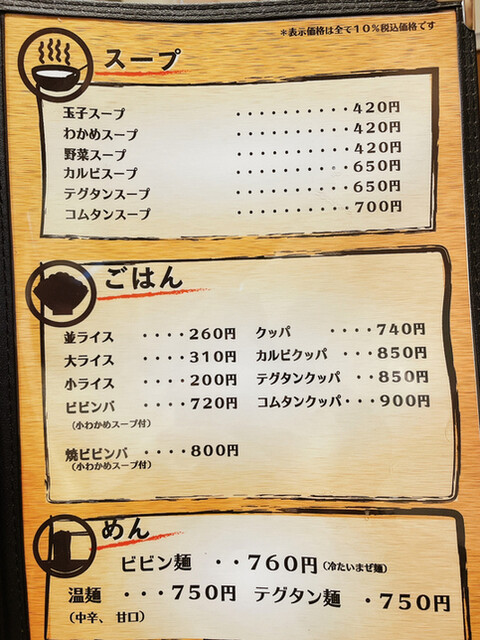 *表示価格は全て10%税込価格です
スープ
玉子スープ ・・・・・・・・・・420円
わかめスープ ・・・・・・・・・・420円
野菜スープ ・・・・・・・・・・420円
カルビスープ ・・・・・・・・・・650円
テグタンスープ ・・・・・・・・・・650円
コムタンスープ ・・・・・・・・・・700円
ごはん
並ライス ・・・・260円
大ライス ・・・・310円
小ライス ・・・・200円
ビビンバ ・・・・720円
(小わかめスープ付)
焼ビビンバ ・・・・800円
(小わかめスープ付)
クッパ ・・・・740円
カルビクッパ ・・・850円
テグタンクッパ ・・850円
コムタンクッパ・・・900円
めん
ビビン麺 ・・760円(冷たいまぜ麺)
温麺 ・・・750円 テグタン麺 ・750円
(中辛、甘口)